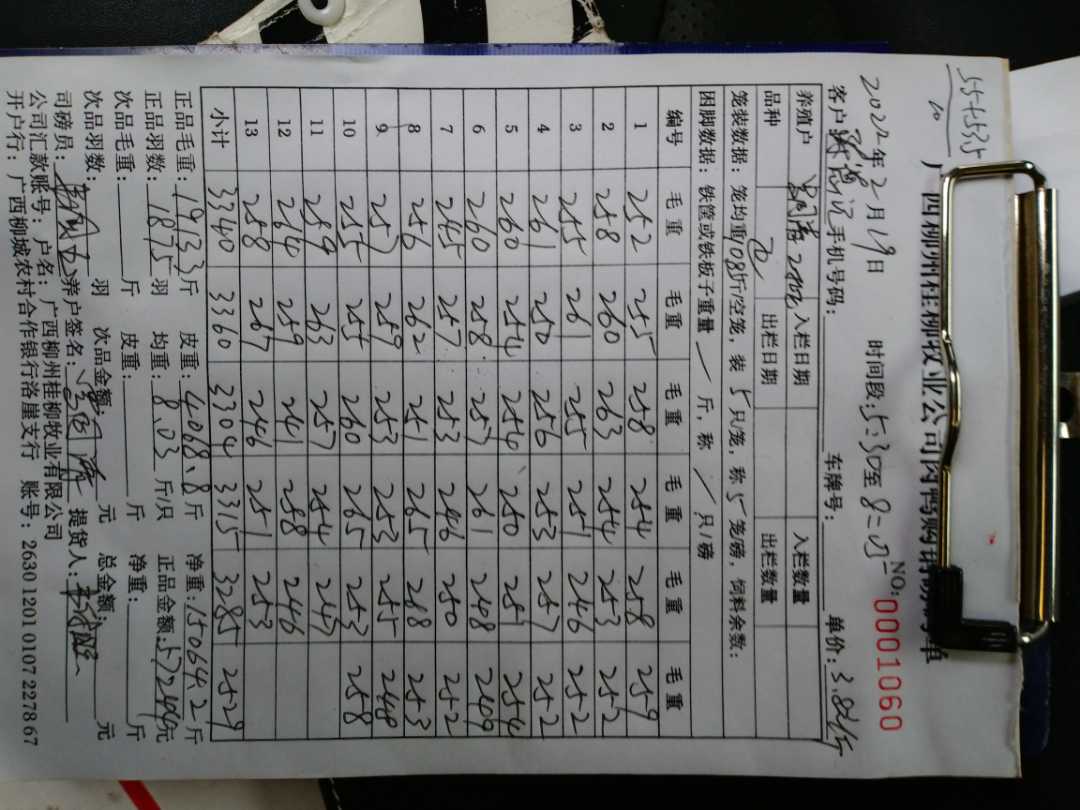 广西柳州桂柳牧业公司肉鸭购销磅码单
NO: 0001060
2022年2月19日 时间段: 5:30至8=05
手机号码: 车牌号: 单价: 3.8元/斤
养殖户 入栏日期 入栏数量
品种 出栏日期 出栏数量
笼装数据: 笼均重10.8斤/空笼, 装5只/笼, 称5笼磅, 饲料余数:
困脚数据: 铁筐或铁板子重量 / 斤, 称 / 只/磅
编号 毛重 毛重 毛重 毛重 毛重 毛重
1 252 255 258 254 258 259
2 258 260 263 254 253 252
3 255 261 255 251 246 252
4 261 250 256 253 257 252
5 260 254 254 250 251 254
6 260 258 257 261 248 249
7 245 257 253 246 250 252
8 256 262 251 265 268 253
9 257 259 253 253 255 248
10 255 255 260 265 253 258
11 259 263 257 254 247
12 264 259 241 258 246
13 258 267 246 251 253
小计 3340 3360 3304 3315 3285 2529
正品毛重: 19133斤 皮重: 4068.8斤 净重: 15064.2斤
正品羽数: 1875羽 均重: 8.03斤/只 正品金额: 57244元
次品毛重: 斤 皮重: 斤 净重: 斤
次品羽数: 羽 次品金额: 元 总金额: 元
司磅员: 养户签名: 提货人:
公司汇款账号: 户名: 广西柳州桂柳牧业有限公司
开户行: 广西柳城农村合作银行洛崖支行 账号: 2630 1201 0107 2278 67